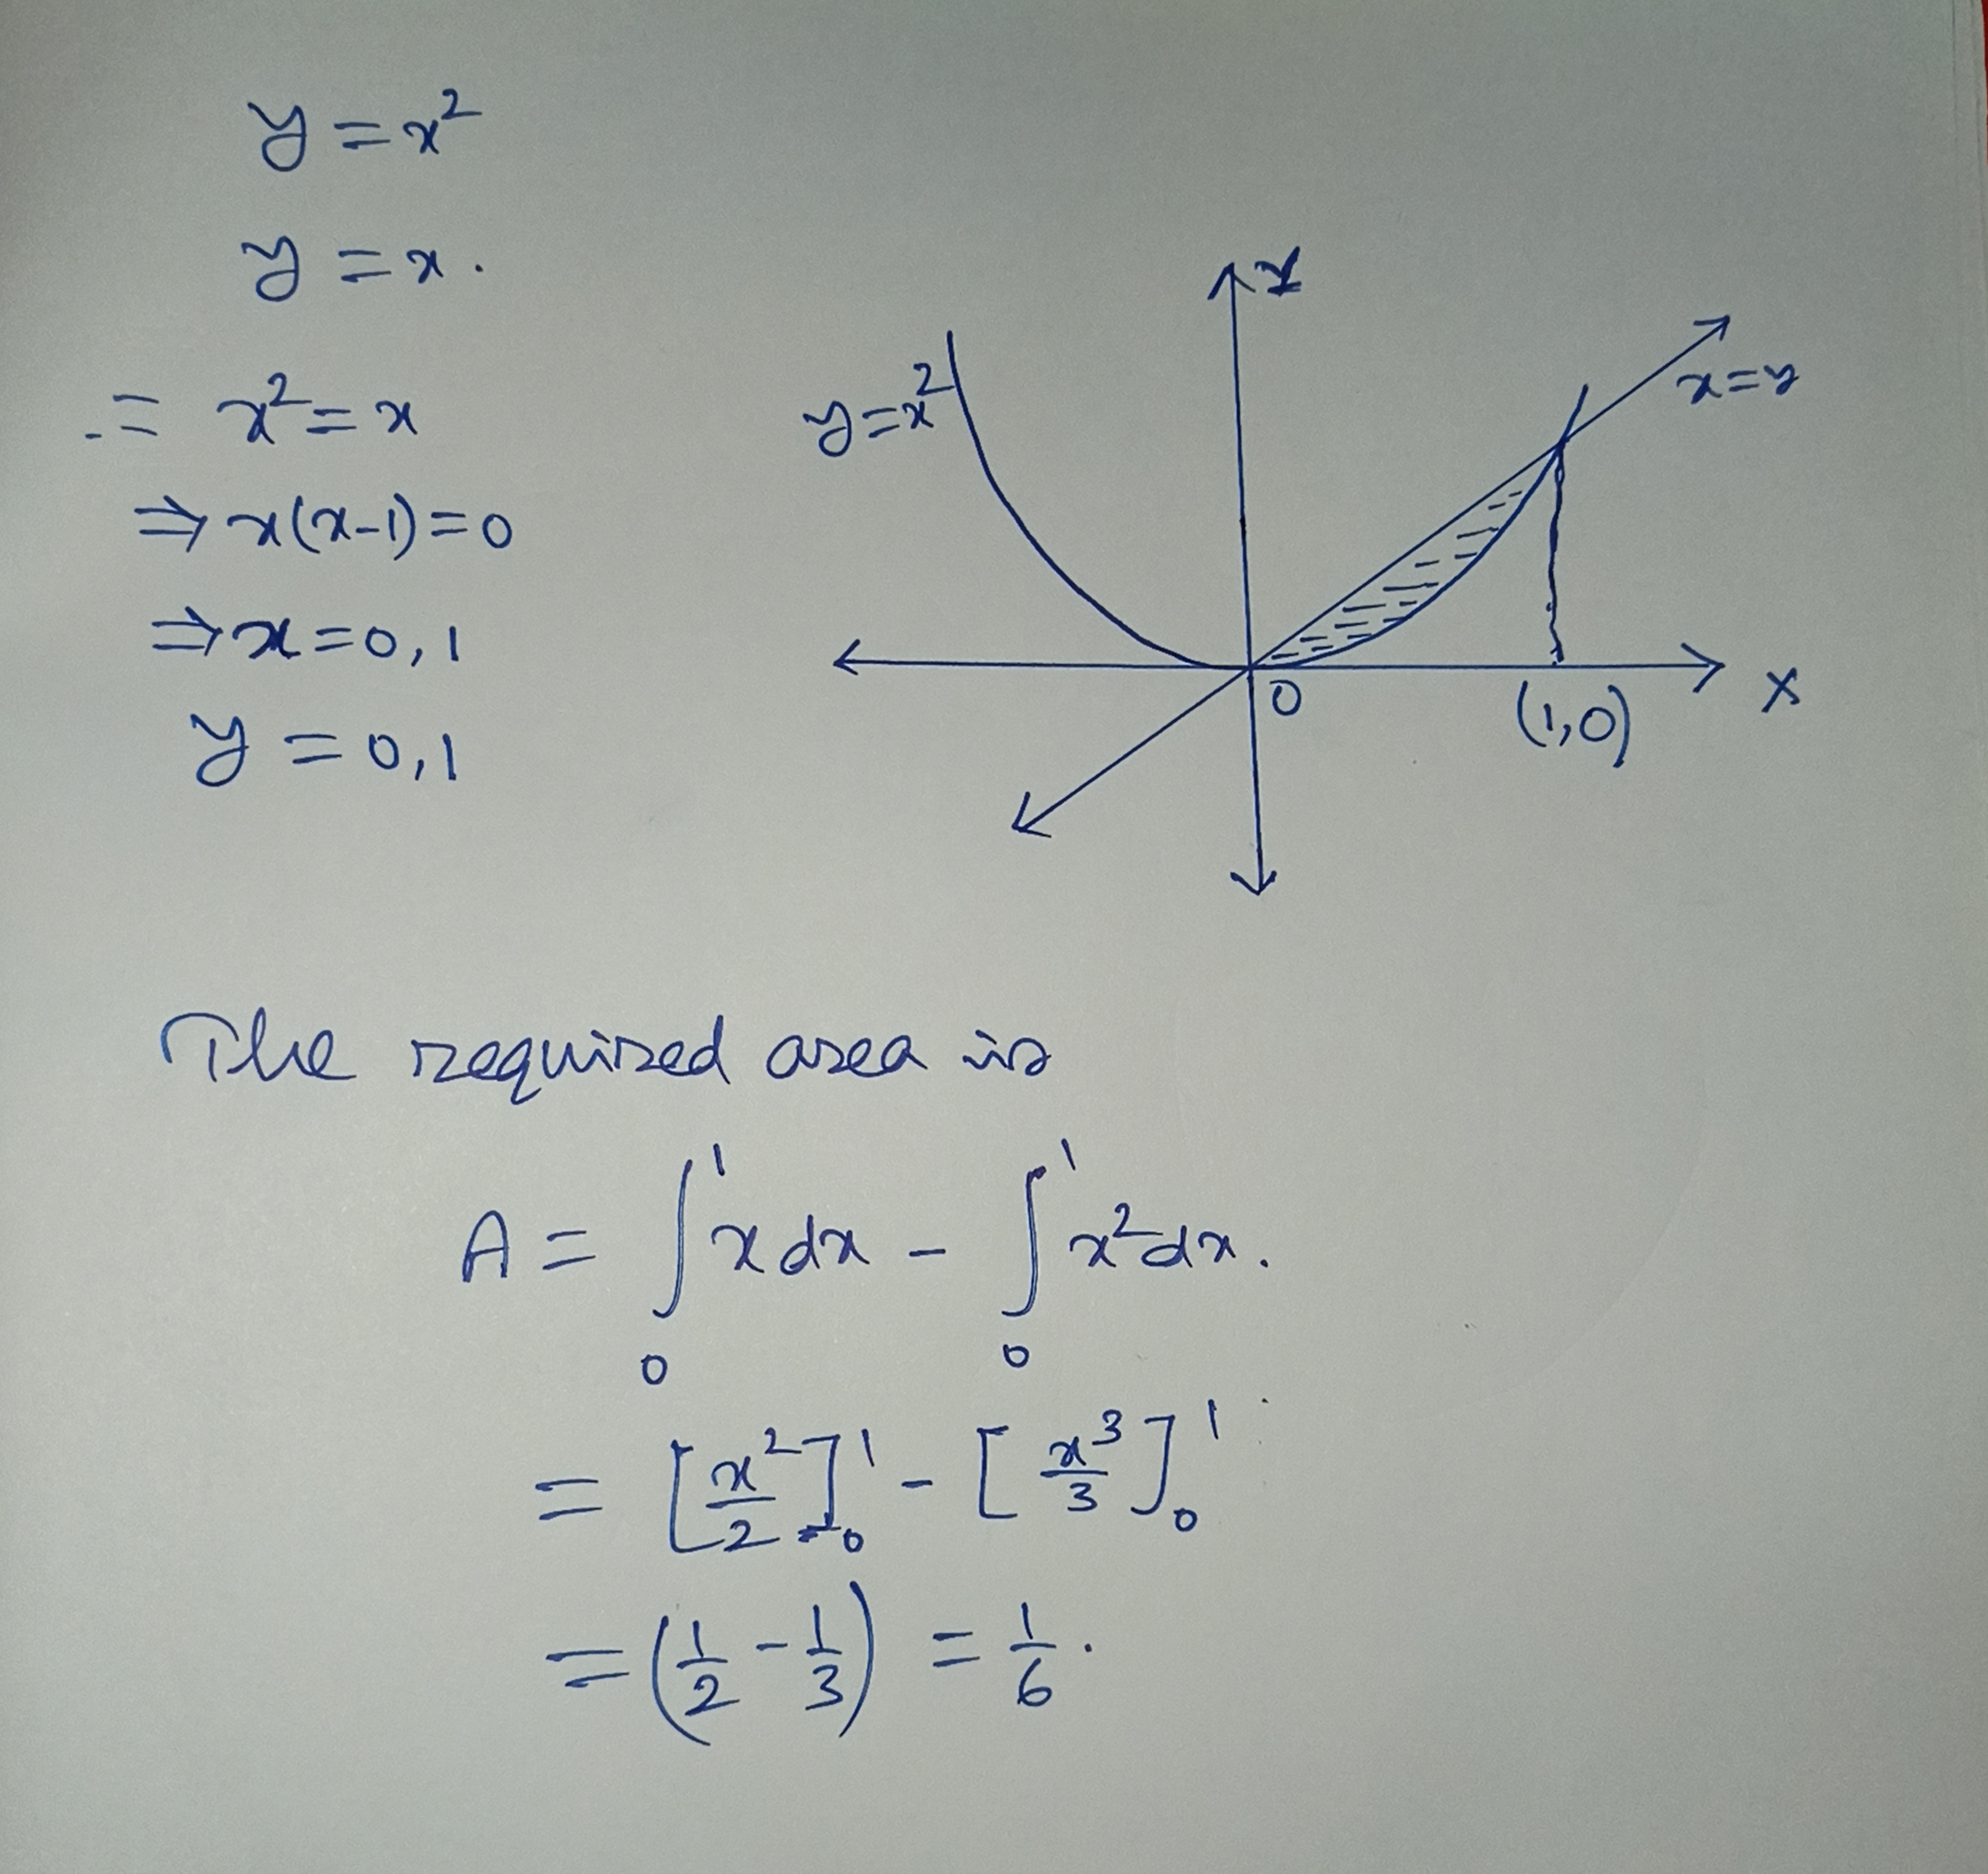 y = x²
y = x.
∴ x² = x
⇒ x(x-1) = 0
⇒ x = 0, 1
y = 0, 1
Y
y = x²
x = y
O
(1,0)
X
The required area is
A = ∫₀¹ x dx - ∫₀¹ x² dx.
= [x²/2]₀¹ - [x³/3]₀¹
= (1/2 - 1/3) = 1/6.